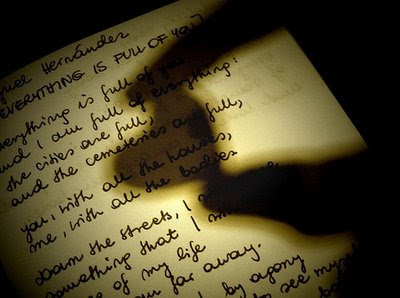 guel Hernández
EVERYTHING IS FULL OF YOU
verything is full of you
and I am full of everything:
the cities are full,
and the cemeteries are full,
you, with all the houses,
me, with all the bodies
Down the streets, I
something that I
of my life
far away.
by agony
see mys